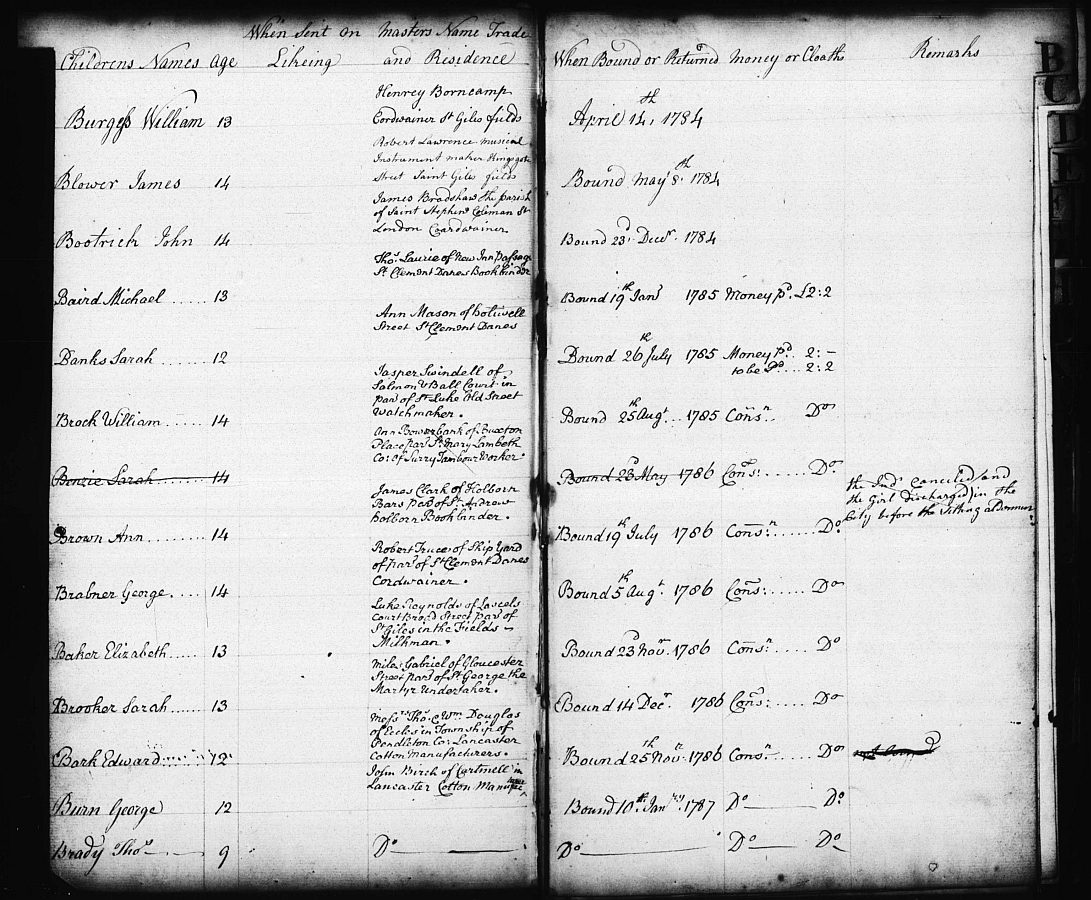 When Sent on Masters Name Trade
Childrens Names Age Likeing and Residence When Bound or Returnd Money or Cloaths Remarks
Henrey Borncamp
Burgess William 13 Cordwainer St Giles fields April 14th, 1784
Robert Lawrence musical
Instrument maker Kingsgat
Blower James 14 Street Saint Giles fields Bound May 8th 1784
James Bradshaw the parish
of Saint Stephens Coleman St
Bootrich John 14 London Coardwainer Bound 23d Decr. 1784
Thos. Laurie of New Inn passage
St Clement Danes Bookbinder
Baird Michael ...... 13 Bound 19th Jany 1785 Money pd. £2:2
Ann Mason of holiwell
Street St Clement Danes
Banks Sarah ...... 12 Bound 26th July 1785 Money pd.. 2:-
to be Pd... 2:2
Jasper Swindell of
Salmon & Ball Court in
par of St Luke Old Street
Brock William ...... 14 Watchmaker. Bound 25th Augt... 1785 Consn. Do
Ann Bowerbank of Buxton
Place par St Mary Lambeth
Co: of Surry Tambour Worker
Benzie Sarah 14 Bound 23d May 1786 Cons: ...... Do. the Indr canceled and
the Girl discharged in the
City before the Sitting
James Clark of Holborn
Bars par of St Andrew
holborn Bookbinder.
Brown Ann ...... 14 Bound 19th July 1786 Consn ...... Do
Robert Truce of Ship Yard
of par of St Clement Danes
Cordwainer.
Brabner George .... 14 Bound 5th Augt 1786 Cons: ...... Do
Luke Reynolds of Lascels
Court Broad Street par of
St Giles in the Fields
Milkman.
Baker Elizabeth ..... 13 Bound 23d Novr. 1786 Consn ...... Do
Miles Gabriel of Gloucester
Street par of St George the
Martyr Undertaker.
Brooker Sarah ...... 13 Bound 14 Decr. 1786 Cons: ...... Do
Messrs Thos. & Wm. Douglas
of Eccles in Township of
Pendleton Co: Lancaster
Cotton Manufacturers.
Bark Edward ...... 12 Bound 25th Novr 1786 Consn ...... Do
John Birch of Cartmell in
Lancaster Cotton
Burn George 12 Bound 10th Janry. 1787 Do Do
Brady Thos 9 Do Do Do Do
B
C
D
E